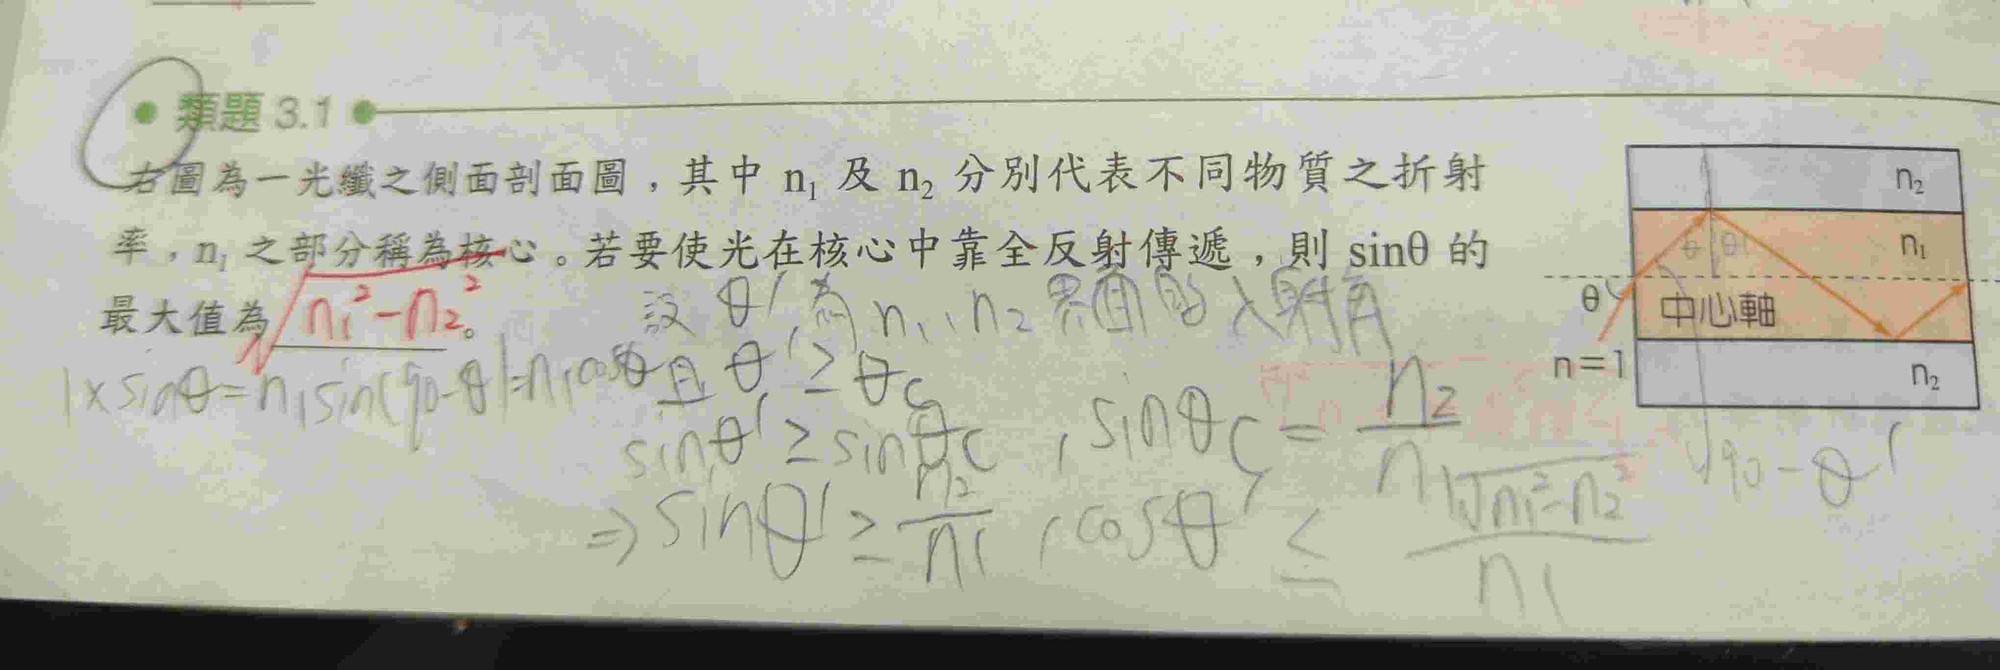 類題 3.1
右圖為一光纖之側面剖面圖，其中 n₁ 及 n₂ 分別代表不同物質之折射
率，n₁ 之部分稱為核心。若要使光在核心中靠全反射傳遞，則 sinθ 的
最大值為 √(n₁²-n₂²)。
設 θ' 為 n₁、n₂ 界面的入射角
1×sinθ=n₁sin(90-θ')=n₁cosθ'
且 θ' ≥ θc
sinθ' ≥ sinθc , sinθc = n₂/n₁
⇒ sinθ' ≥ n₂/n₁ , cosθ' ≤ √(n₁²-n₂²)/n₁
n₂
n₁
θ θ'
θ
中心軸
n=1
n₂
90-θ'